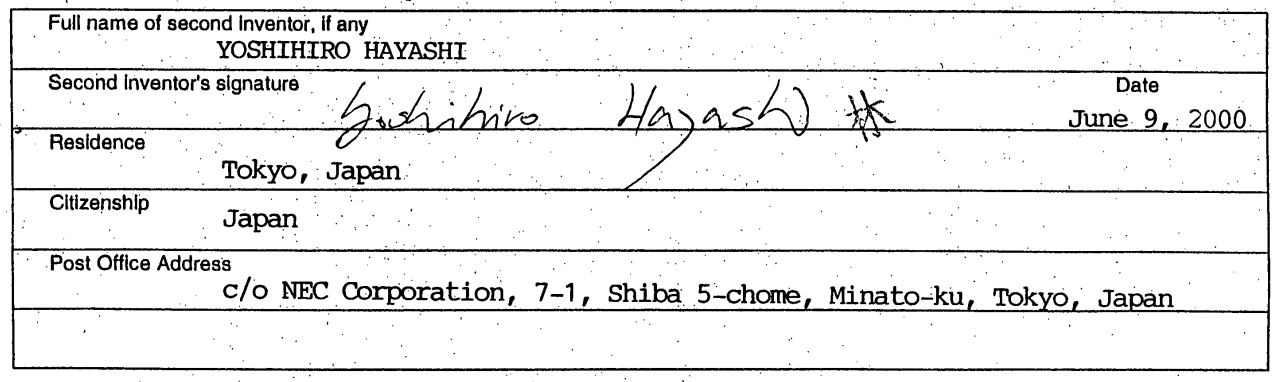 Full name of second inventor, if any
YOSHIHIRO HAYASHI
Second inventor's signature
Date
Yoshihiro Hayashi 林
June 9, 2000
Residence
Tokyo, Japan
Citizenship
Japan
Post Office Address
c/o NEC Corporation, 7-1, Shiba 5-chome, Minato-ku, Tokyo, Japan